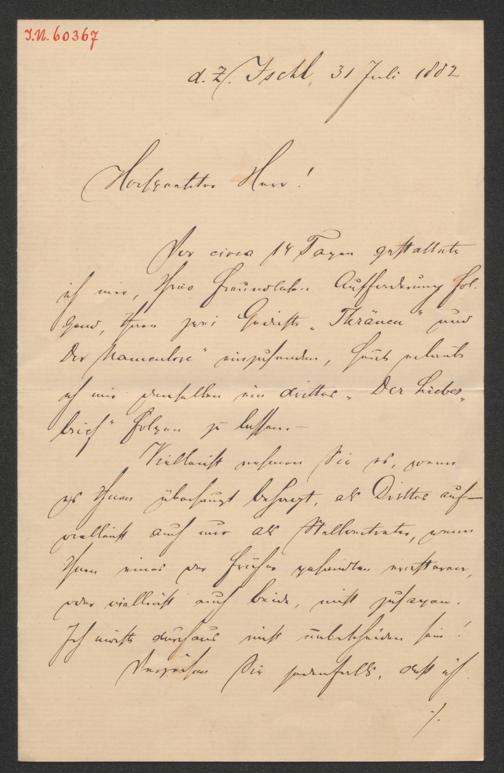 I.N. 60367
d. Z. Ischl, 31 Juli 1882
Hochgeehrter Herr!
Vor circa 14 Tagen gestattete
ich mir, Ihrer freundlichen Aufforderung fol-
gend, Ihnen zwei Gedichte „Thränen“ und
„Der Namenlose“ einzusenden, heute erlaube
ich mir denselben ein drittes „Der Liebes-
brief“ folgen zu lassen.–
Vielleicht nehmen Sie es, wenn
es Ihnen überhaupt behagt, als Drittes auf–
vielleicht auch nur als Stellvertreter, wenn
Ihnen eines der früher gesandten
oder vielleicht auch beide, nicht zusagen.
Ich möchte durchaus nicht unbescheiden sein!
Verzeihen Sie jedenfalls, daß ich
./.